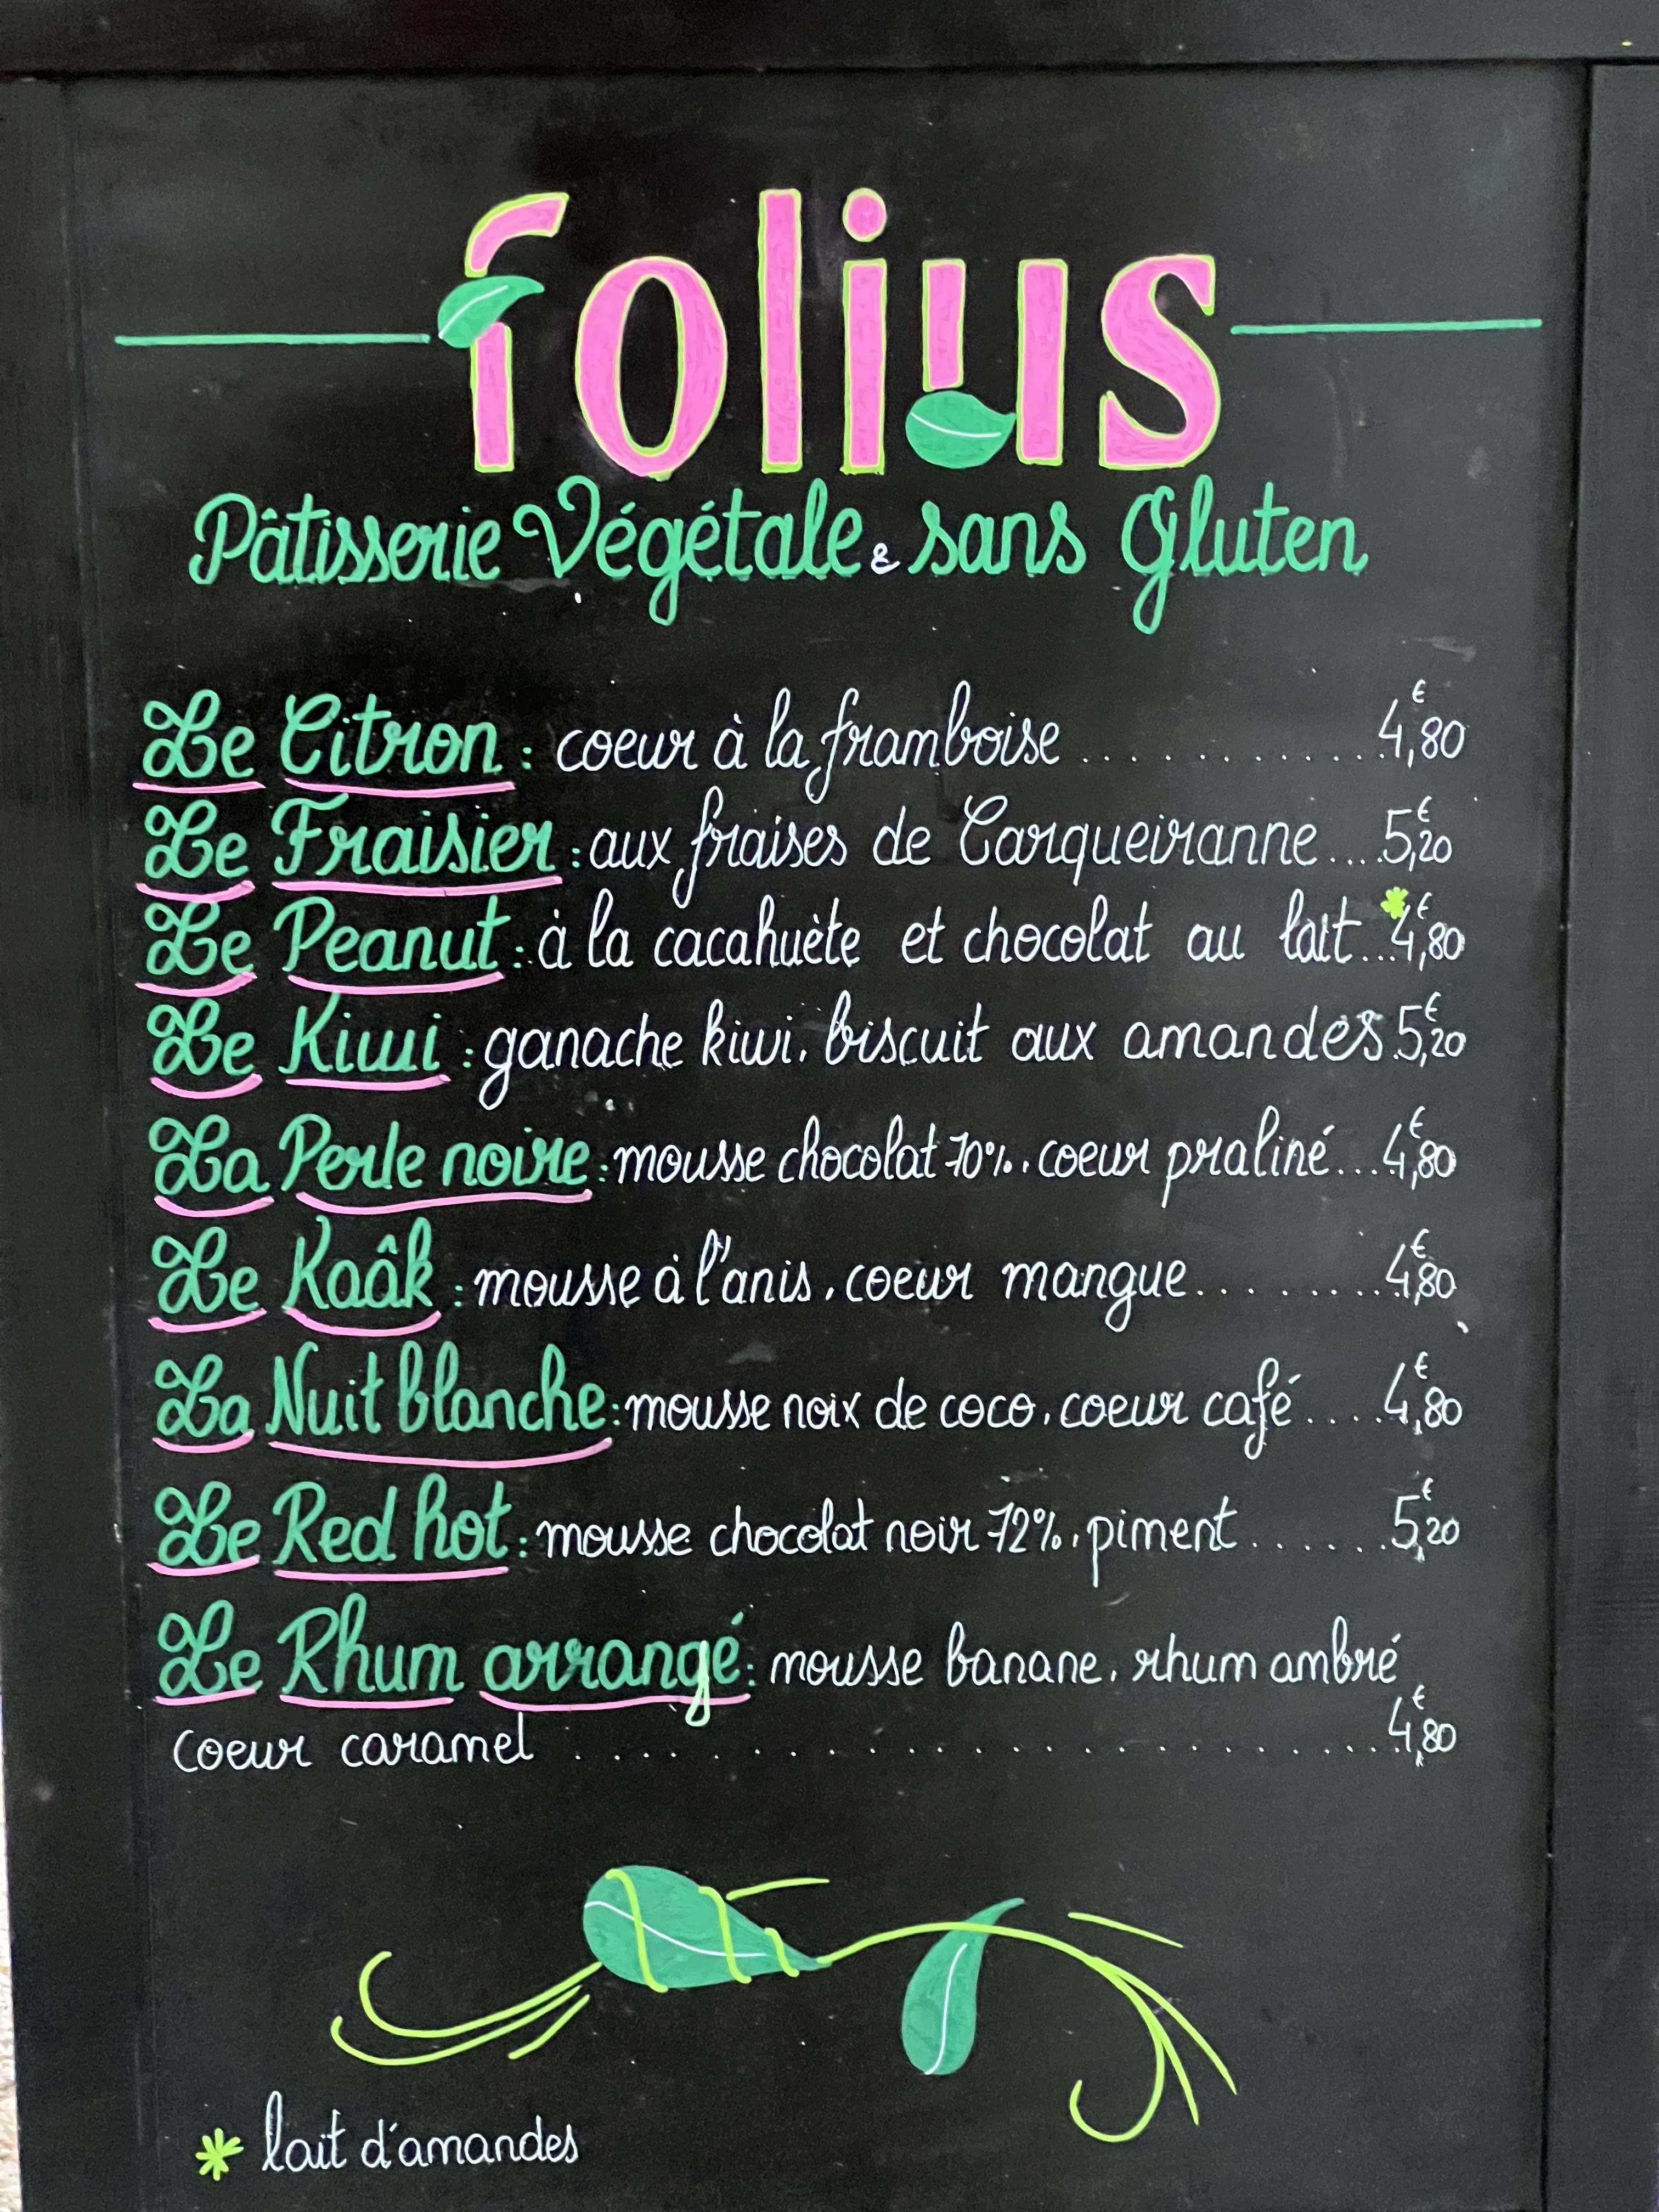 folius
Pâtisserie Végétale & sans Gluten
Le Citron : coeur à la framboise .............. 4,80€
Le Fraisier : aux fraises de Carqueiranne.... 5,20€
Le Peanut : à la cacahuète et chocolat au lait*... 4,80€
Le Kiwi : ganache kiwi, biscuit aux amandes. 5,20€
La Perle noire : mousse chocolat 70%, coeur praliné... 4,80€
Le Kaâk : mousse à l'anis, coeur mangue......... 4,80€
La Nuit blanche : mousse noix de coco, coeur café.... 4,80€
Le Red hot : mousse chocolat noir 72%, piment....... 5,20€
Le Rhum arrangé : mousse banane, rhum ambré
coeur caramel ..................... 4,80€
* lait d'amandes